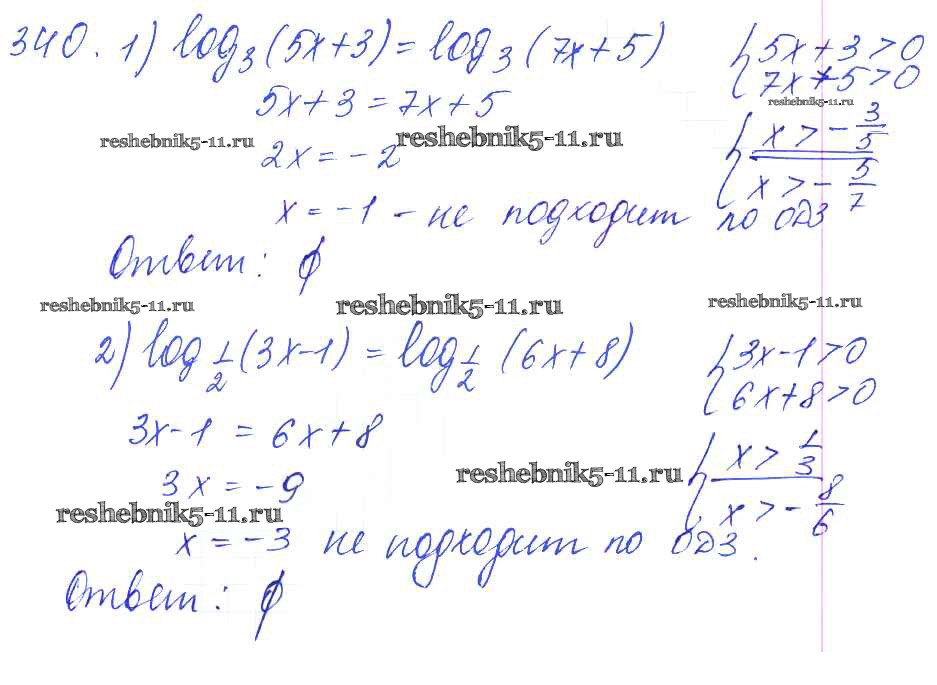 340. 1) log₃(5x+3) = log₃(7x+5) { 5x+3>0
7x+5>0
5x+3 = 7x+5
reshebnik5-11.ru
reshebnik5-11.ru reshebnik5-11.ru
{ x > -3/5
2x = -2
x > -5/7
x = -1 - не подходит по ОДЗ
Ответ: ∅
reshebnik5-11.ru reshebnik5-11.ru reshebnik5-11.ru
2) log_1/2 (3x-1) = log_1/2 (6x+8) { 3x-1>0
6x+8>0
3x-1 = 6x+8
{ x > 1/3
reshebnik5-11.ru
3x = -9
x > -8/6
reshebnik5-11.ru
x = -3 не подходит по ОДЗ.
Ответ: ∅